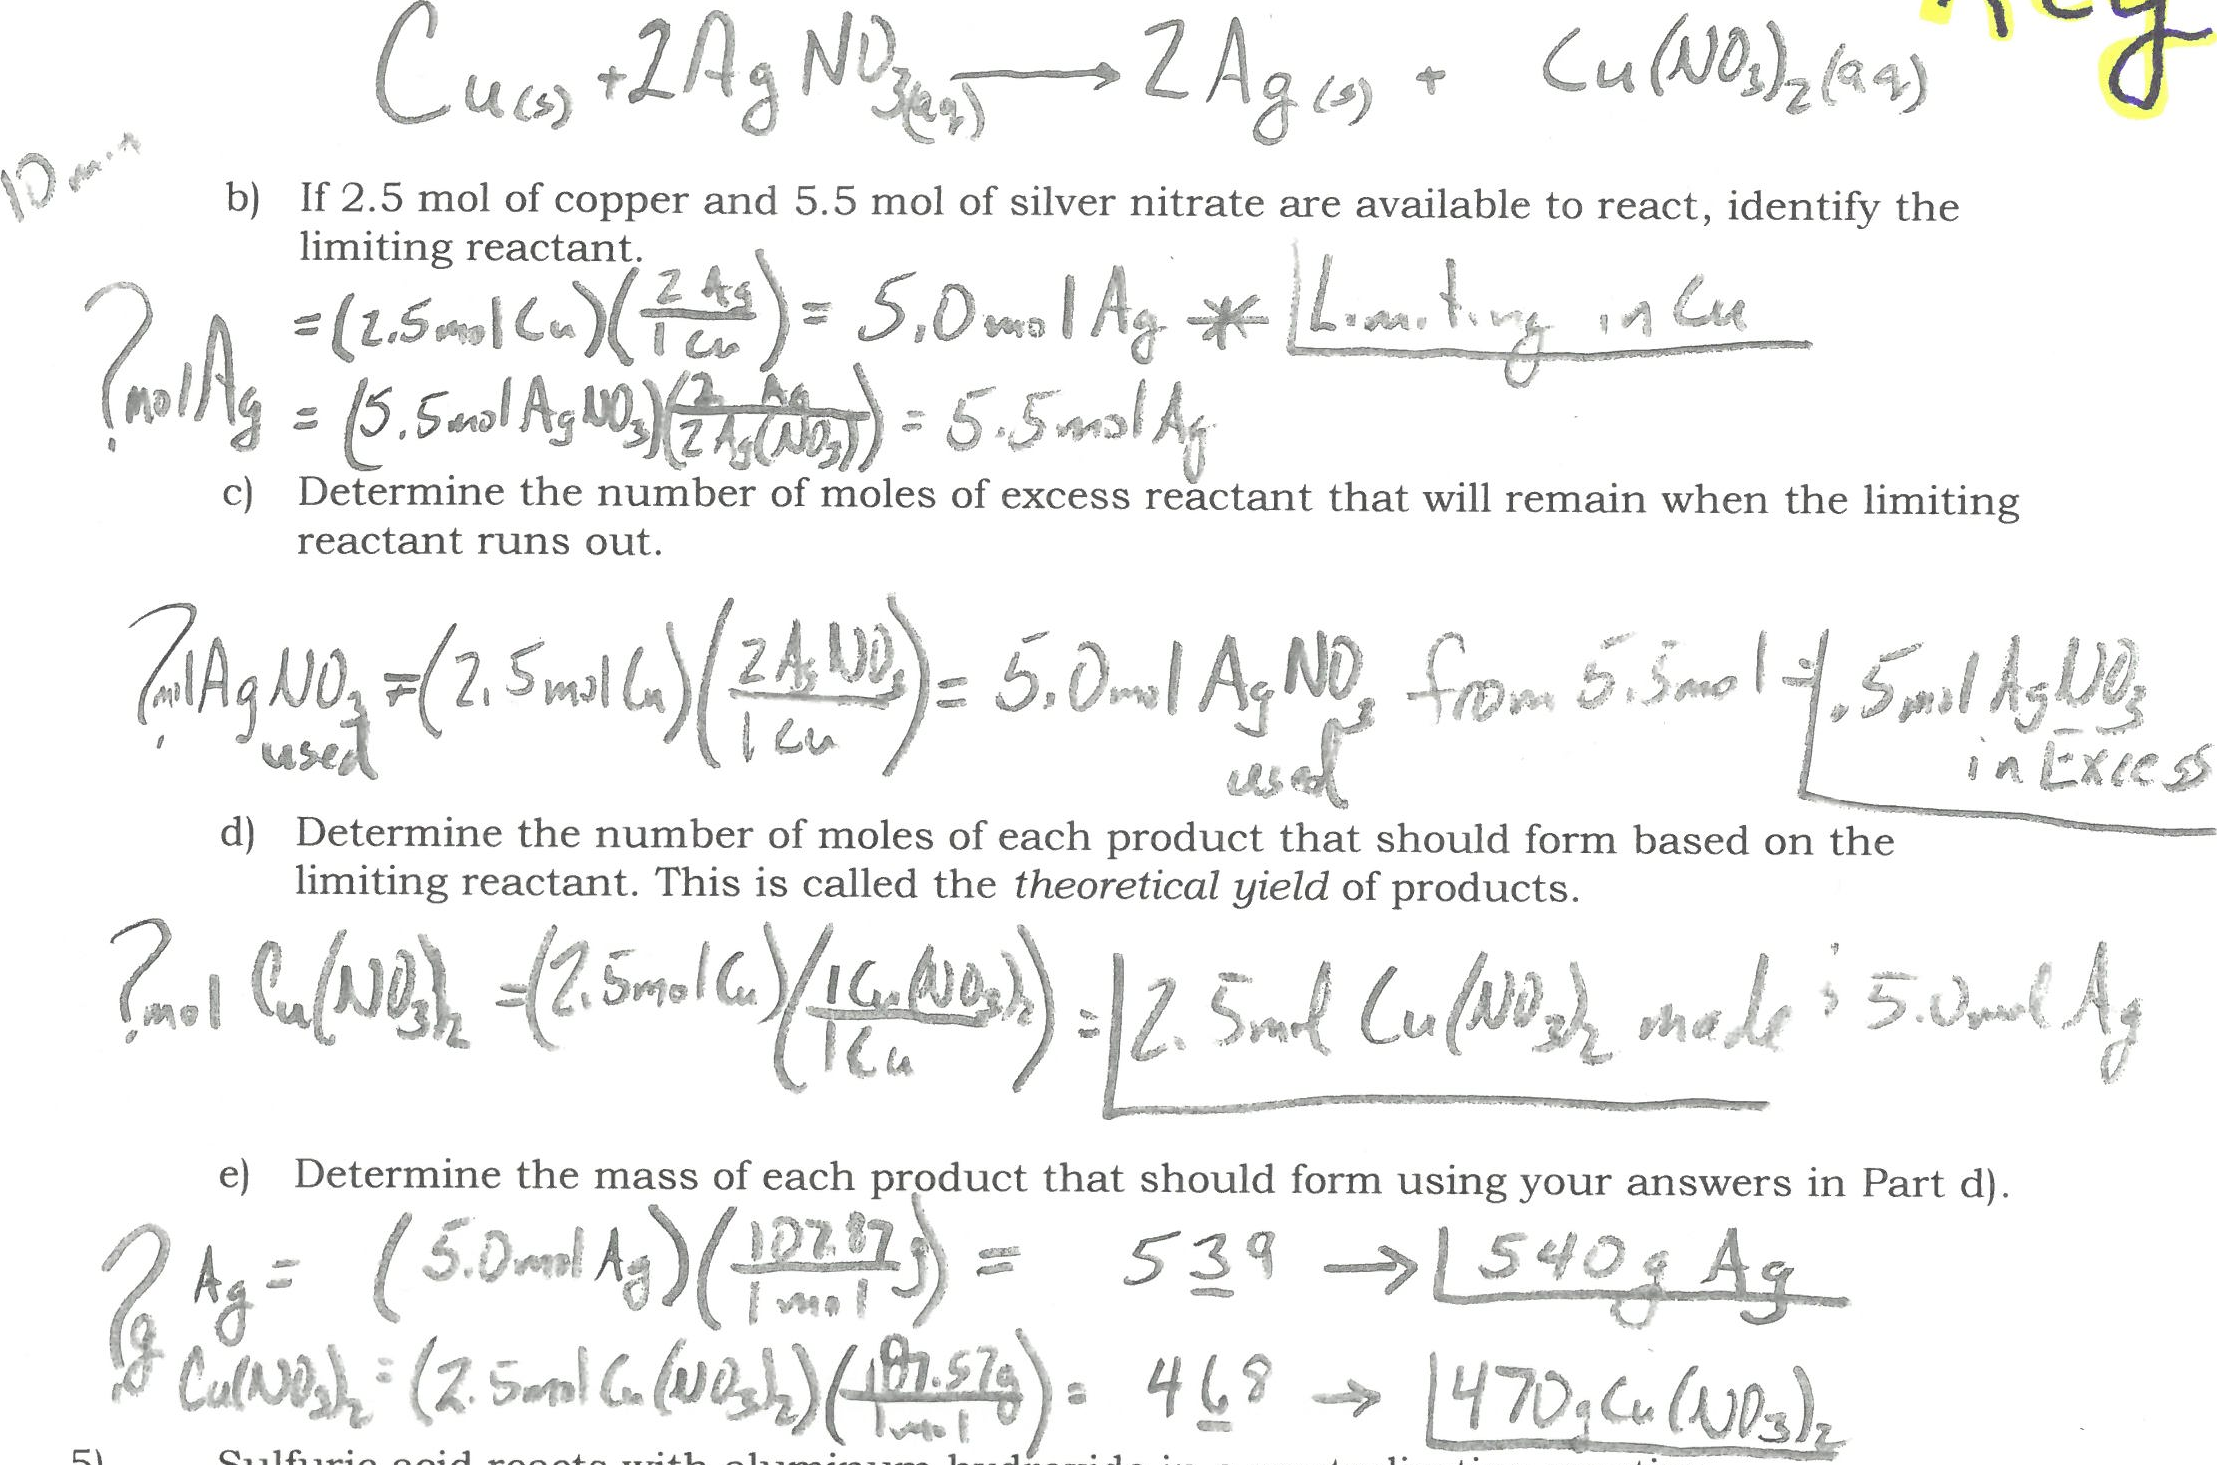 Key
Cu(s) + 2AgNO3(aq) → 2Ag(s) + Cu(NO3)2(aq)
10 min
b) If 2.5 mol of copper and 5.5 mol of silver nitrate are available to react, identify the
limiting reactant.
?mol Ag = (2.5 mol Cu)(2 Ag/1 Cu) = 5.0 mol Ag * Limiting in Cu
= (5.5 mol AgNO3)(2 Ag/2 Ag(NO3)) = 5.5 mol Ag
c) Determine the number of moles of excess reactant that will remain when the limiting
reactant runs out.
?mol AgNO3 used = (2.5 mol Cu)(2 AgNO3/1 Cu) = 5.0 mol AgNO3 used from 5.5 mol = .5 mol AgNO3
in Excess
d) Determine the number of moles of each product that should form based on the
limiting reactant. This is called the theoretical yield of products.
?mol Cu(NO3)2 = (2.5 mol Cu)(1 Cu(NO3)2/1 Cu) = 2.5 mol Cu(NO3)2 made ; 5.0 mol Ag
e) Determine the mass of each product that should form using your answers in Part d).
?g Ag = (5.0 mol Ag)(107.87 g/1 mol) = 539 → 540 g Ag
Cu(NO3)2 = (2.5 mol Cu(NO3)2)(187.57g/1 mol) = 468 → 470 g Cu(NO3)2
5) Sulfuric acid reacts with aluminum hydroxide in a